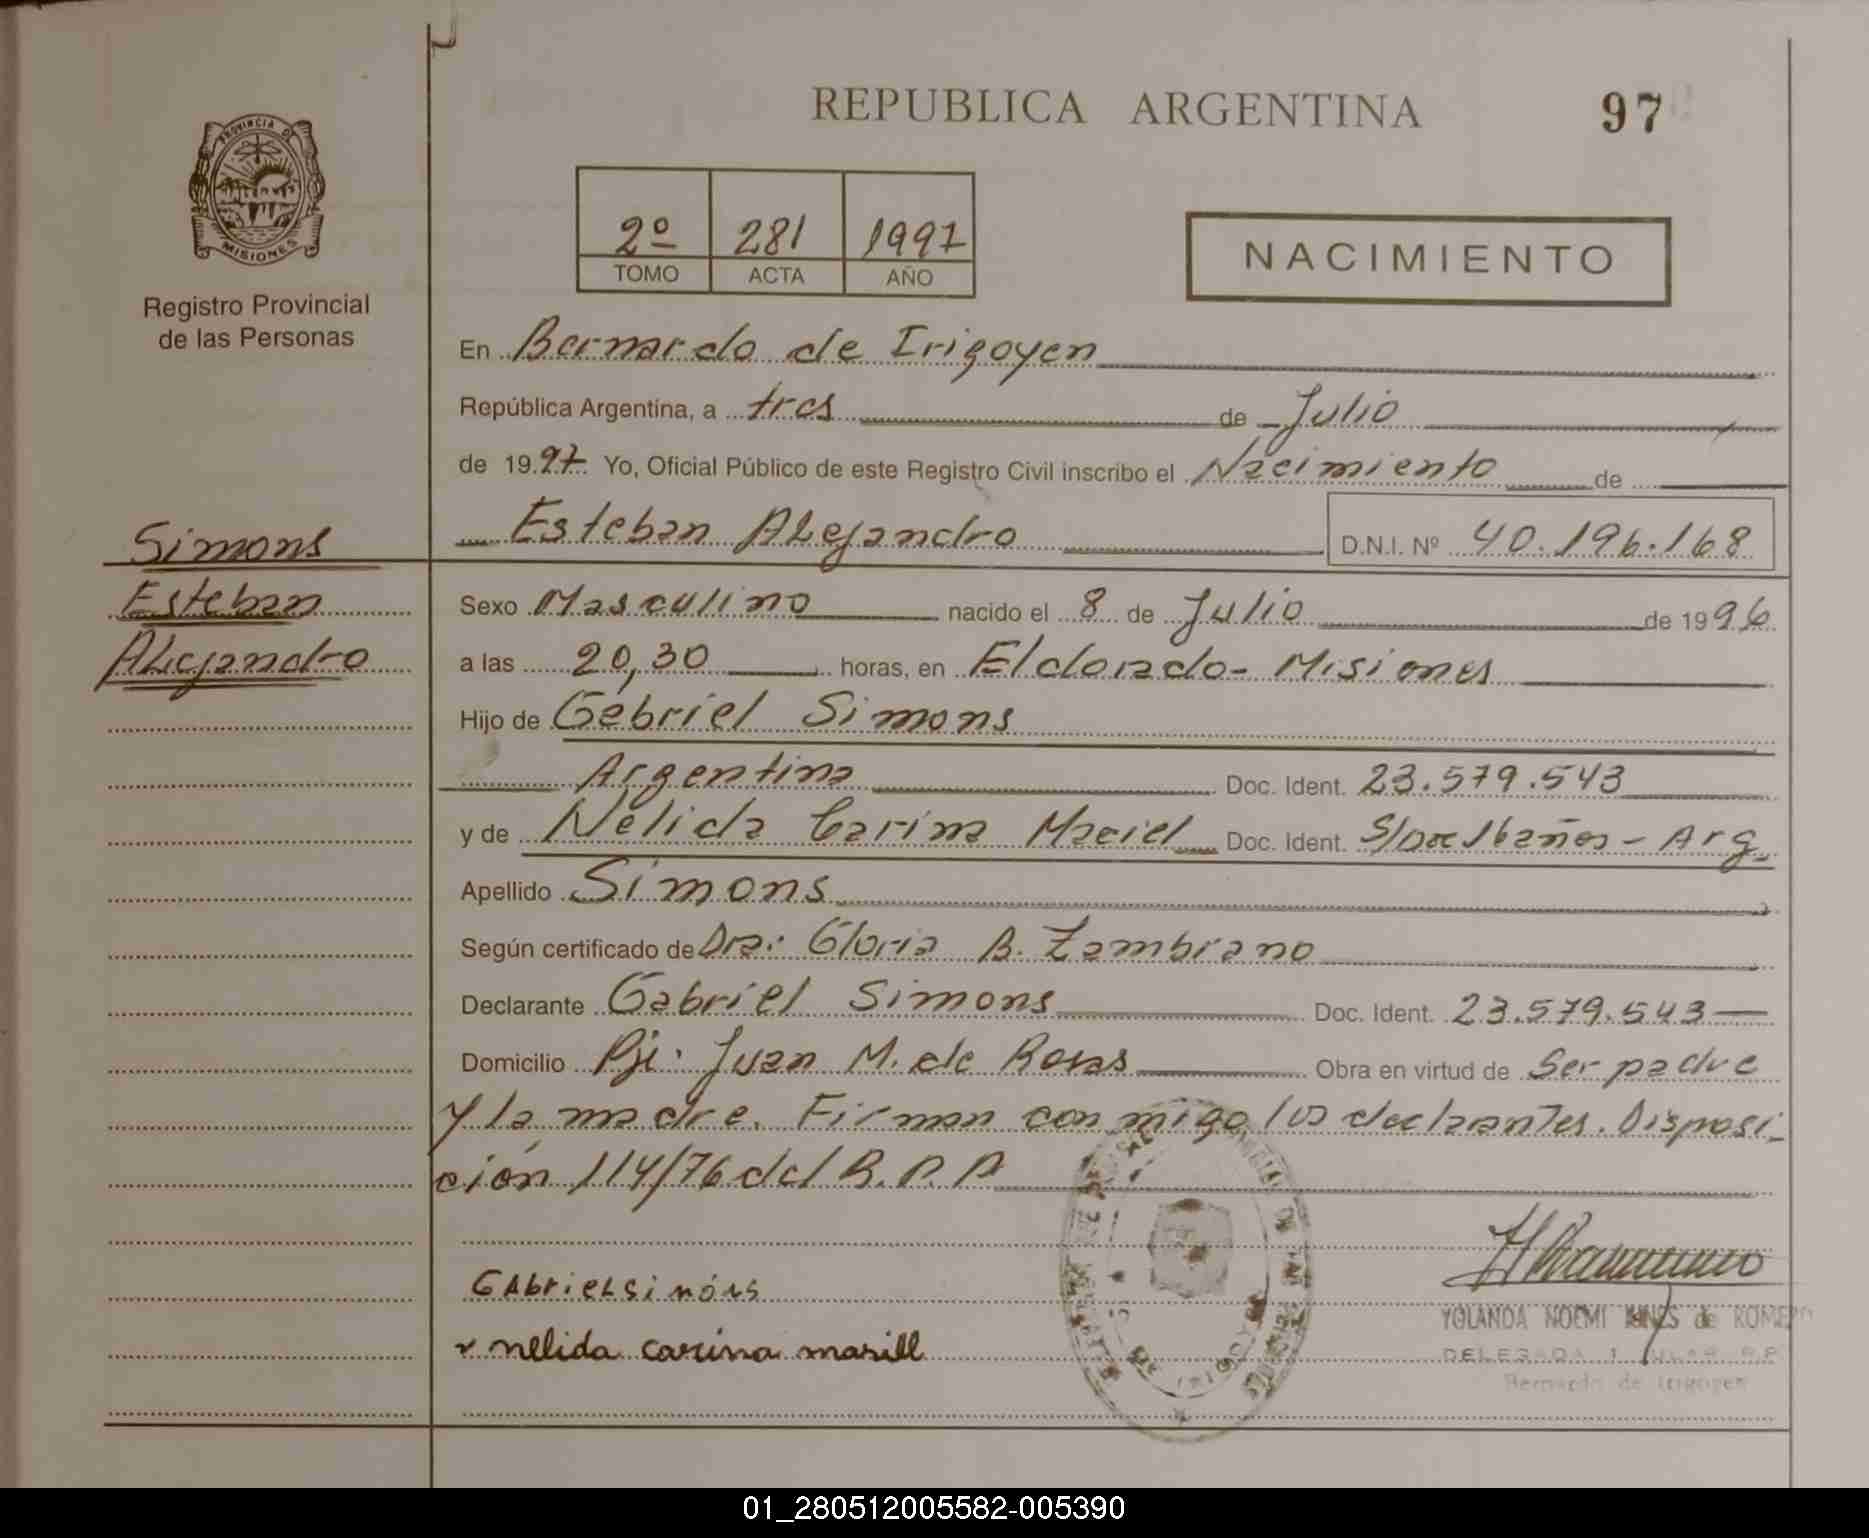 REPUBLICA ARGENTINA
97
PROVINCIA D
MISIONES
Registro Provincial
de las Personas
2º 281 1997
TOMO ACTA AÑO
NACIMIENTO
En Bernardo de Irigoyen
República Argentina, a tres de Julio
de 1997 Yo, Oficial Público de este Registro Civil inscribo el Nacimiento de
Esteban Alejandro D.N.I. Nº 40.196.168
Simons
Esteban
Alejandro
Sexo Masculino nacido el 8 de Julio de 1996
a las 20,30 horas, en Eldorado - Misiones
Hijo de Gabriel Simons
Argentina Doc. Ident. 23.579.543
y de Nélida Carina Maciel Doc. Ident. S/Doc 16años - Arg.
Apellido Simons
Según certificado de Dra: Gloria B. Zambrano
Declarante Gabriel Simons Doc. Ident. 23.579.543
Domicilio Pje. Juan M. de Rosas Obra en virtud de Ser padre
y la madre. Firman con migo los declarantes. Disposi-
ción 114/76 del R.P.P
GAbrieLsimóns
nelida carina masill
YOLANDA NOEMI de ROMERO
DELEGADA R.P.
Bernardo de Irigoyen
01_280512005582-005390